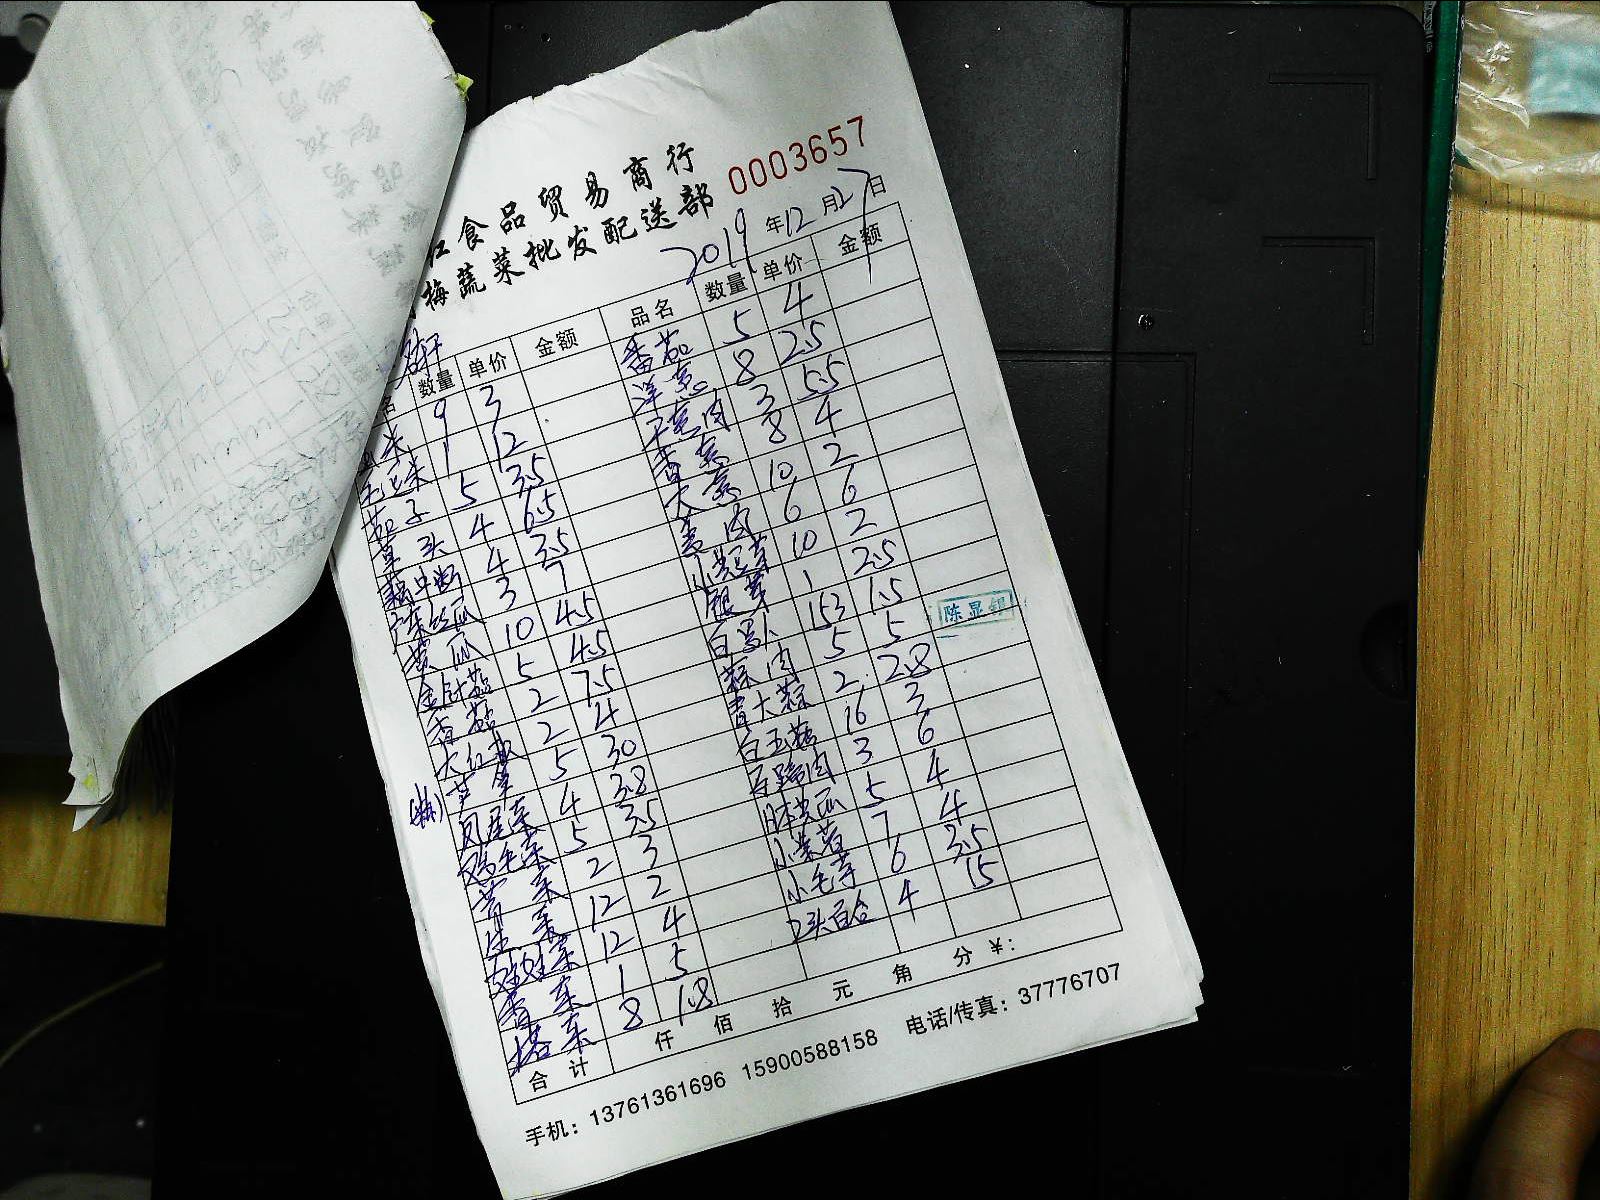 红食品贸易商行
梅蔬菜批发配送部
0003657
2019年12月27日
数量 单价 金额 品名 数量 单价 金额
9 3 番茄 5 4
毛毛菜 1 12 洋葱 8 2.5
茄子 5 3.5 3 5.5
草头 4 6.5 香葱 8 4
藕中断 4 3.5 大葱 10 2
广东丝瓜 3 7 姜肉 6 6
黄瓜 10 4.5 小黄芽 10 2
金针菇 5 4.5 银芽 1 2.5
香菇 2 7.5 白萝卜 153 1.5
大红椒 2 4 蒜肉 5 5
芦笋 5 30 青大蒜 2 2.8
凤尾菜 4 3.8 白玉菇 16 3
鸡毛菜 5 3.5 马蹄肉 3 6
菜 2 3 日本黄瓜 5 4
生菜 12 2 小紫薯 7 4
娃娃菜 12 4 小毛芋 6 3.5
香菜 1 5 头百合 4 15
塔菜 8 1.8
陈显银
合计 仟 佰 拾 元 角 分 ¥:
手机: 13761361696 15900588158 电话/传真: 37776707